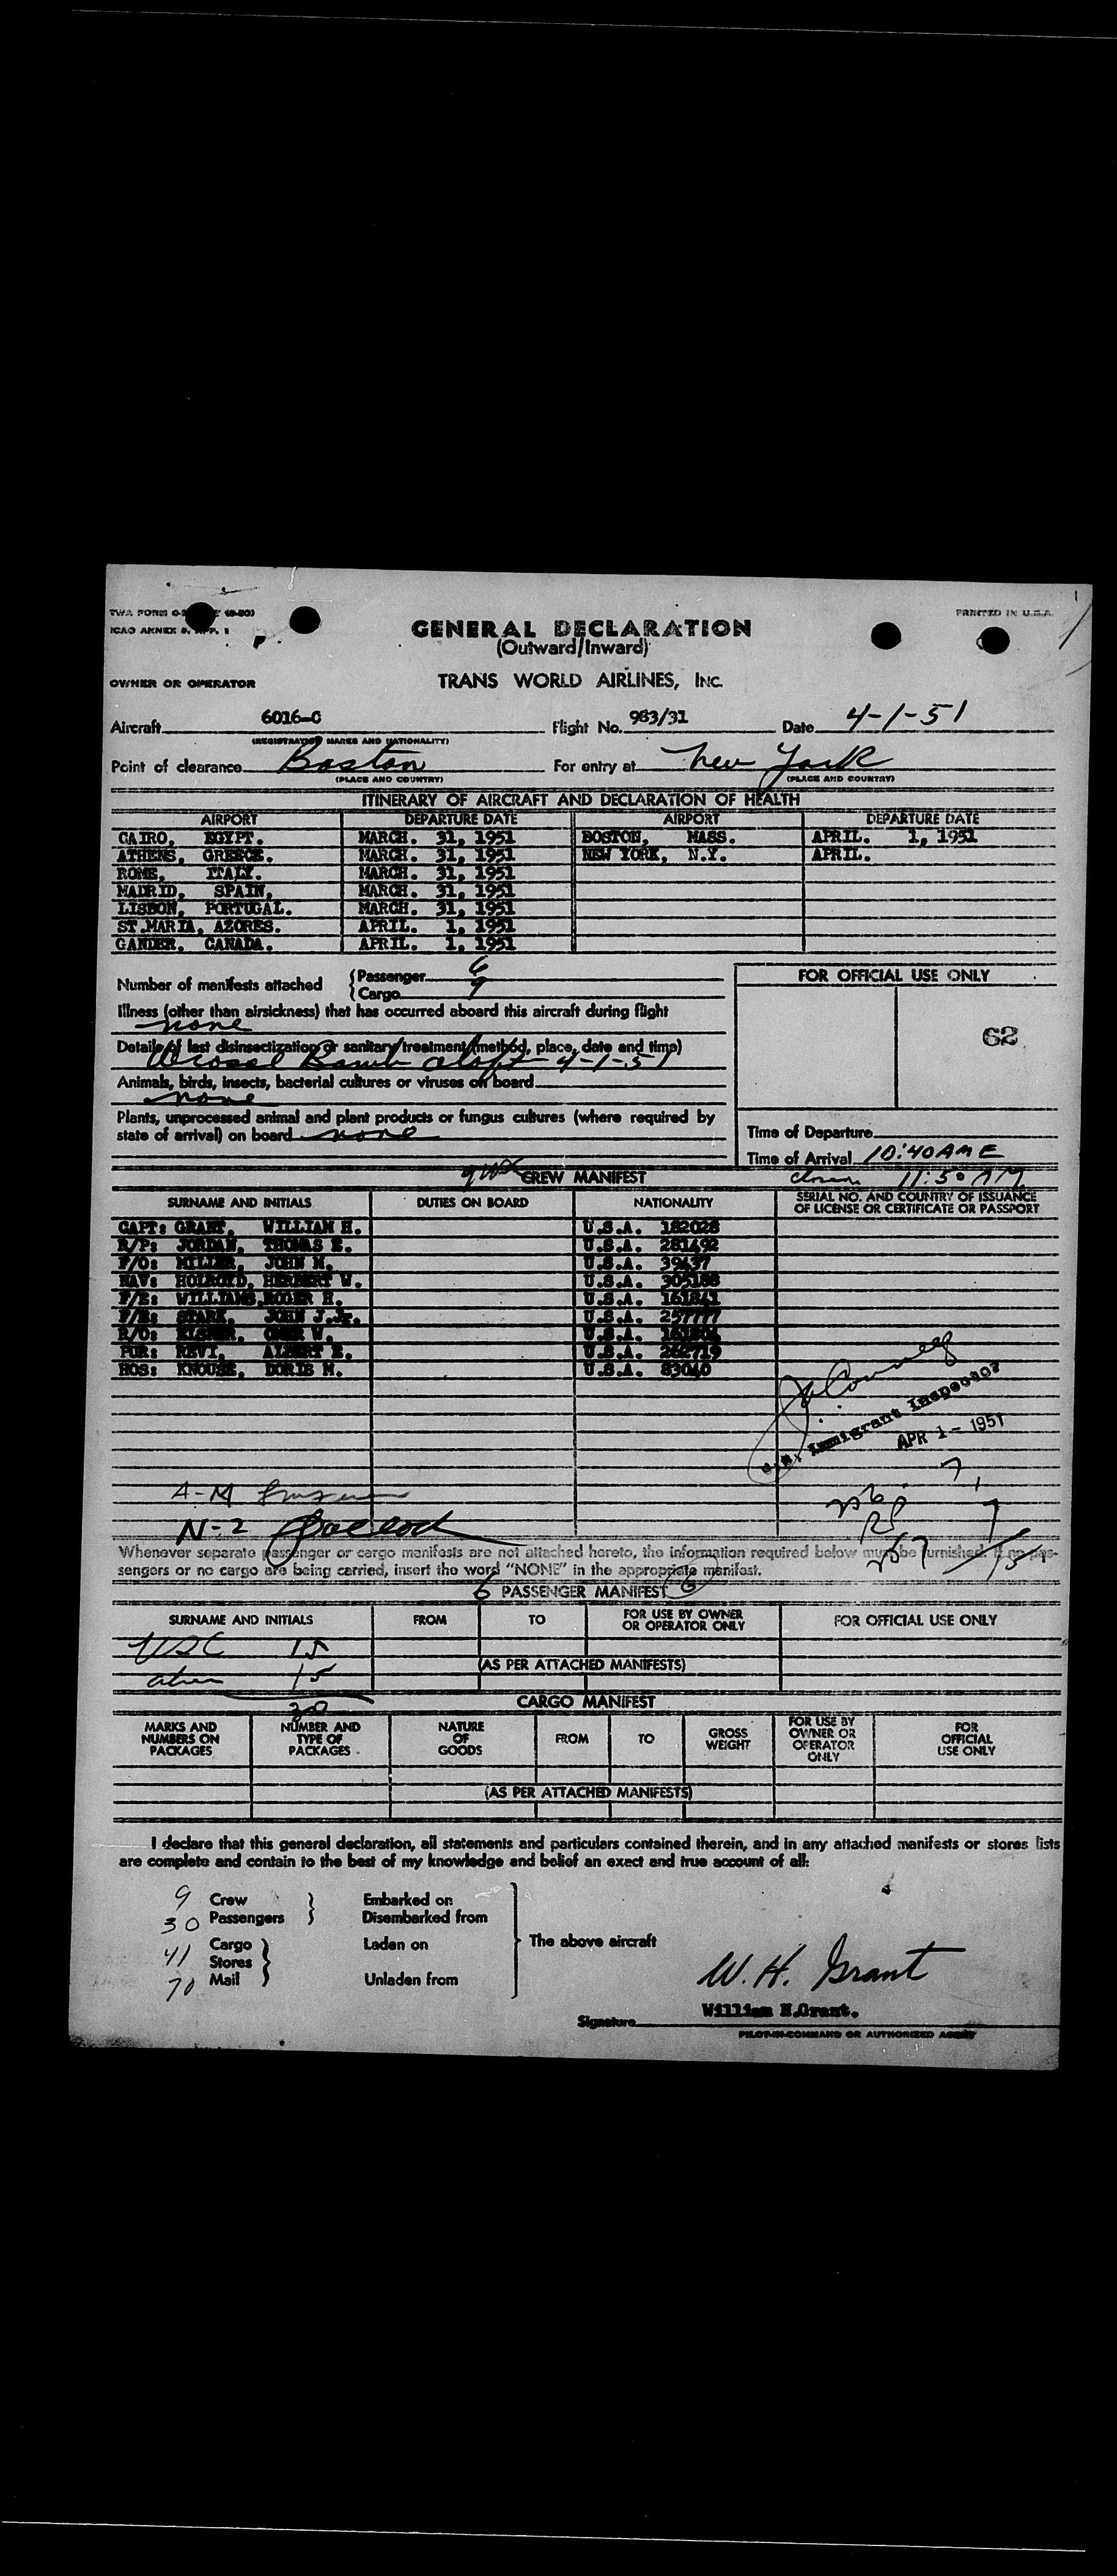 PRINTED IN U.S.A.
ICAO ANNEX 9, APP. 1
GENERAL DECLARATION
(Outward/Inward)
OWNER OR OPERATOR TRANS WORLD AIRLINES, INC.
Aircraft 6016-C Flight No. 983/31 Date 4-1-51
(REGISTRATION MARKS AND NATIONALITY)
Point of clearance Boston For entry at New York
(PLACE AND COUNTRY) (PLACE AND COUNTRY)
ITINERARY OF AIRCRAFT AND DECLARATION OF HEALTH
AIRPORT DEPARTURE DATE AIRPORT DEPARTURE DATE
CAIRO, EGYPT. MARCH. 31, 1951 BOSTON, MASS. APRIL. 1, 1951
ATHENS, GREECE. MARCH. 31, 1951 NEW YORK, N.Y. APRIL.
ROME, ITALY. MARCH. 31, 1951
MADRID, SPAIN, MARCH. 31, 1951
LISBON, PORTUGAL. MARCH. 31, 1951
ST.MARIA, AZORES. APRIL. 1, 1951
GANDER, CANADA. APRIL. 1, 1951
Number of manifests attached Passenger 6
Cargo 9
FOR OFFICIAL USE ONLY
Illness (other than airsickness) that has occurred aboard this aircraft during flight
none
62
Details of last disinsectization or sanitary treatment (method, place, date and time)
Bomb aloft 4-1-51
Animals, birds, insects, bacterial cultures or viruses on board
none
Plants, unprocessed animal and plant products or fungus cultures (where required by
state of arrival) on board none
Time of Departure
Time of Arrival 10:40 AM E
11:50 AM
CREW MANIFEST
SURNAME AND INITIALS DUTIES ON BOARD NATIONALITY SERIAL NO. AND COUNTRY OF ISSUANCE
OF LICENSE OR CERTIFICATE OR PASSPORT
CAPT: GRANT, WILLIAM H. U.S.A. 182028
R/P: JORDAN, THOMAS E. U.S.A. 281492
F/O: MILLER, JOHN M. U.S.A. 39437
NAV: HOLROYD, HERBERT W. U.S.A. 305188
F/E: WILLIAMS, ROGER H. U.S.A. 161841
F/E: STARK, JOHN J.Jr. U.S.A. 257777
R/O: W. U.S.A.
PUR: REVI, ALBERT E. U.S.A. 262719
HOS: KNOUSE, DORIS M. U.S.A. 83040
Immigrant Inspector
APR 1 - 1951
A-M
N-2
Whenever separate passenger or cargo manifests are not attached hereto, the information required below must be furnished. If no pas-
sengers or no cargo are being carried, insert the word "NONE" in the appropriate manifest.
6 PASSENGER MANIFEST 6
SURNAME AND INITIALS FROM TO FOR USE BY OWNER
OR OPERATOR ONLY FOR OFFICIAL USE ONLY
USC 15
(AS PER ATTACHED MANIFESTS)
alien 15
30
CARGO MANIFEST
MARKS AND
NUMBERS ON
PACKAGES NUMBER AND
TYPE OF
PACKAGES NATURE
OF
GOODS FROM TO GROSS
WEIGHT FOR USE BY
OWNER OR
OPERATOR
ONLY FOR
OFFICIAL
USE ONLY
(AS PER ATTACHED MANIFESTS)
I declare that this general declaration, all statements and particulars contained therein, and in any attached manifests or stores lists
are complete and contain to the best of my knowledge and belief an exact and true account of all:
9 Crew Embarked on
30 Passengers Disembarked from
41 Cargo Laden on The above aircraft
Stores
70 Mail Unladen from
W. H. Grant
William H.Grant.
Signature
PILOT-IN-COMMAND OR AUTHORIZED AGENT